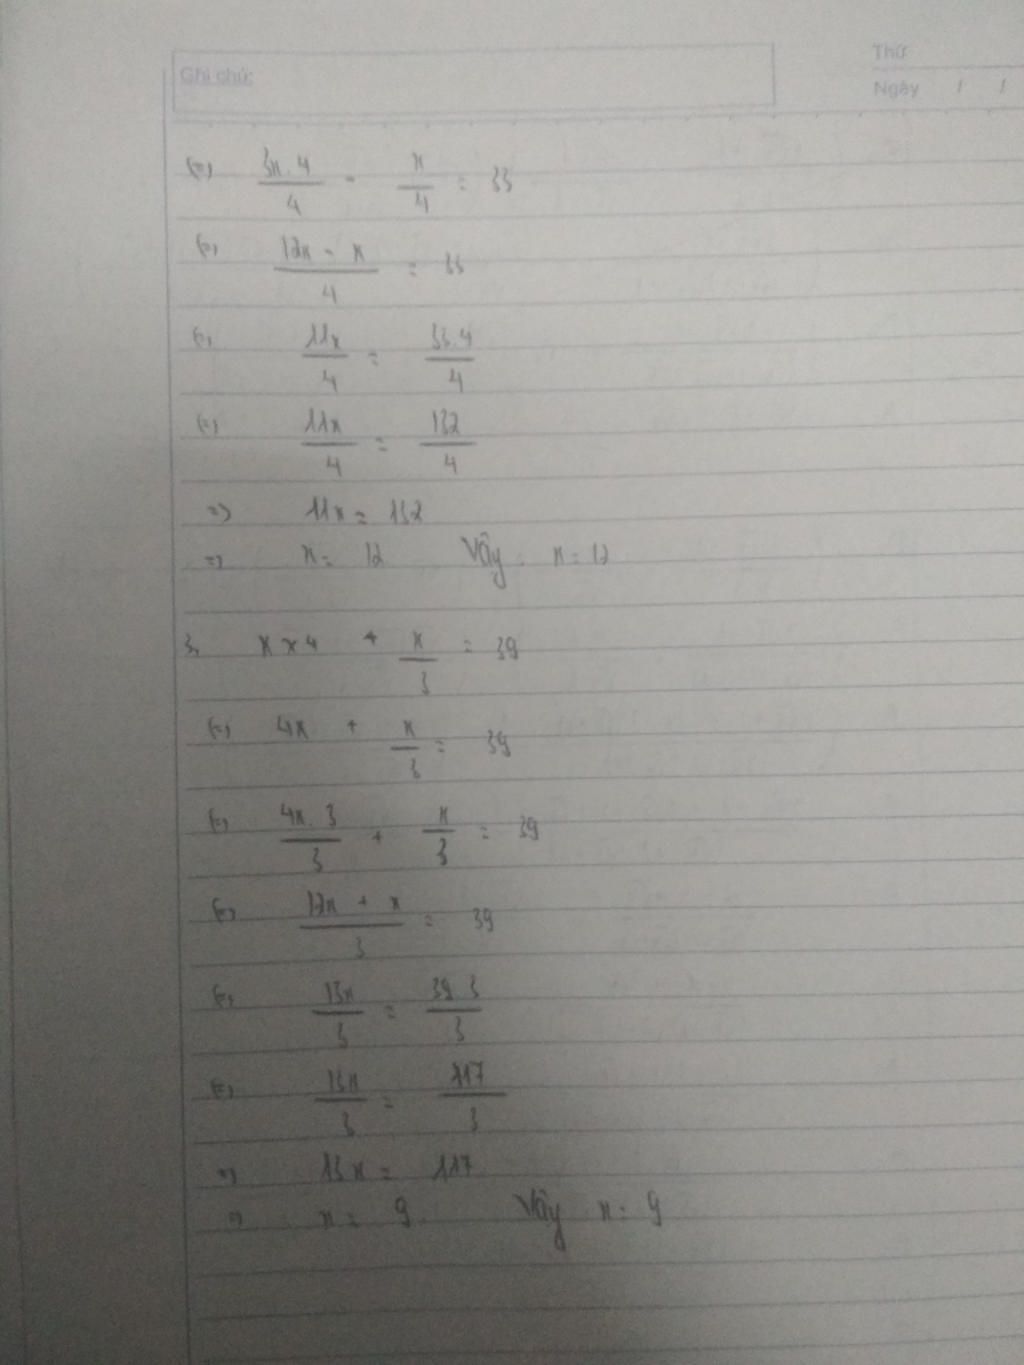 Ghi chú:
Thứ
Ngày / /
(=) 3x.4/4 - x/4 = 33
(=) 12x - x/4 = 33
(=) 11x/4 = 33.4/4
(=) 11x/4 = 132/4
=) 11x = 132
=) x = 12 Vậy x = 12
3, x × 4 + x/3 = 39
(=) 4x + x/3 = 39
(=) 4x.3/3 + x/3 = 39
(=) 12x + x/3 = 39
(=) 13x/3 = 39.3/3
(=) 13x/3 = 117/3
=) 13x = 117
=) x = 9. Vậy x = 9